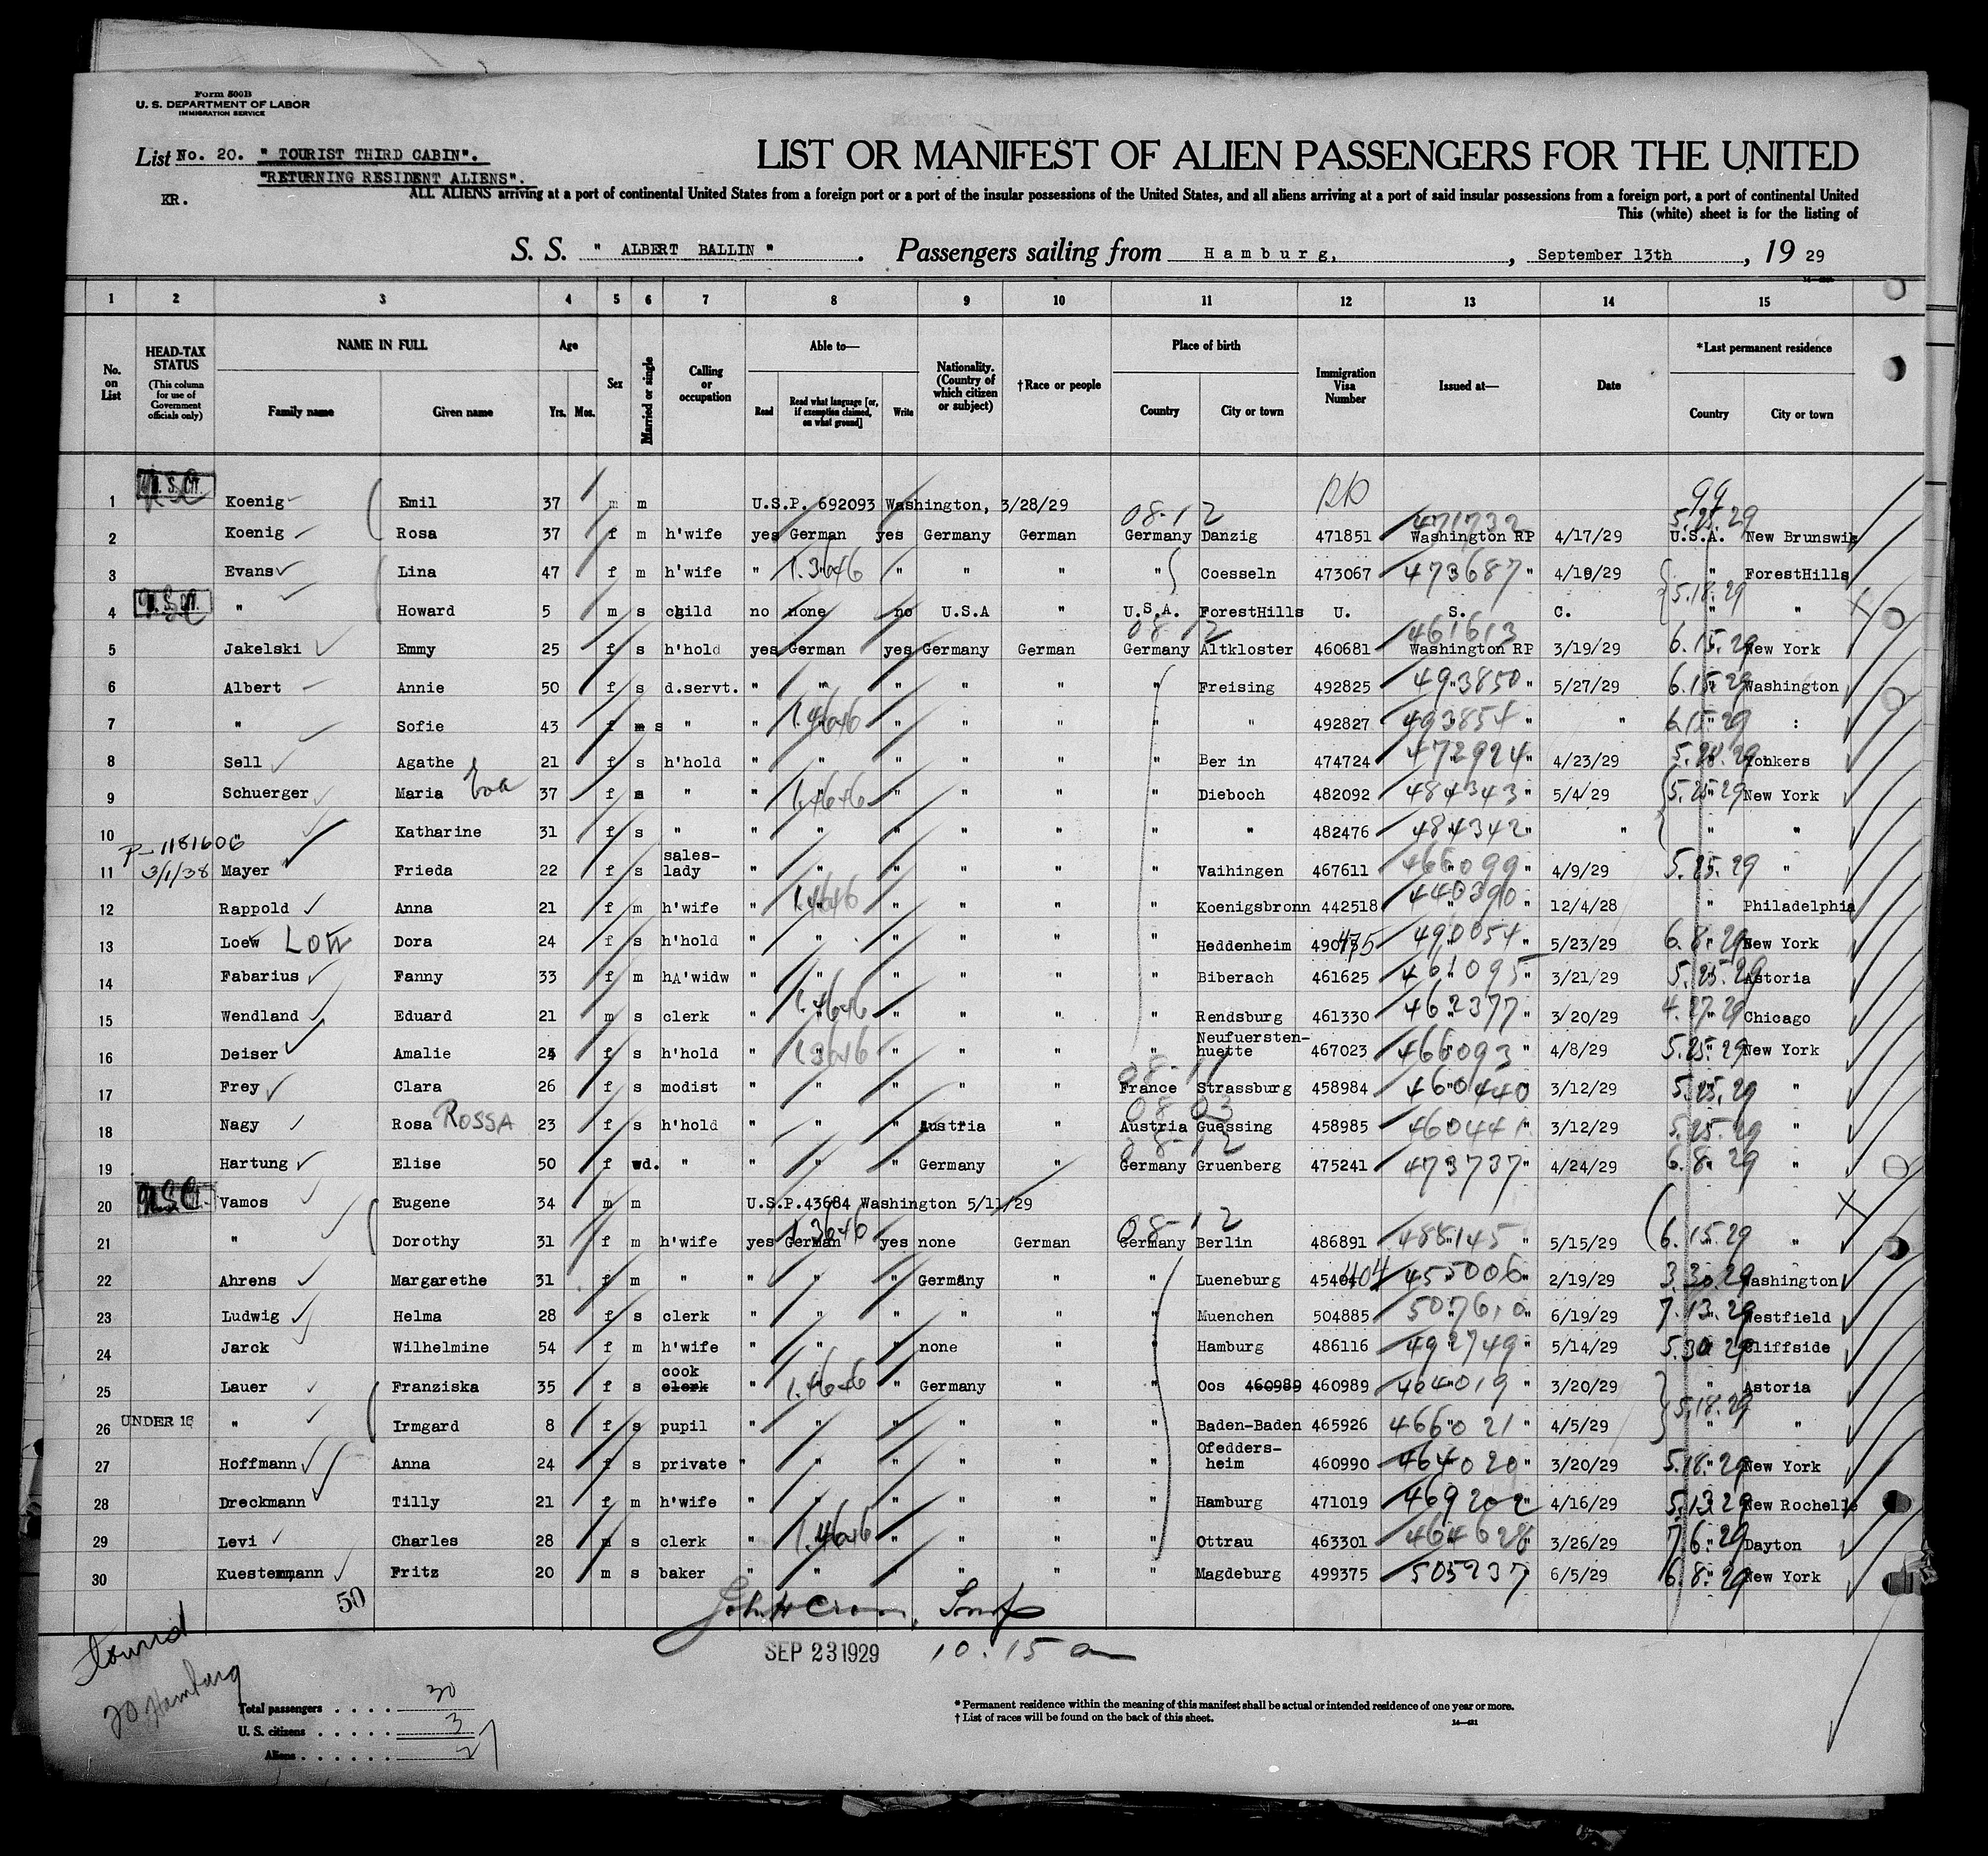 Form 500B
U. S. DEPARTMENT OF LABOR
IMMIGRATION SERVICE
List No. 20. " TOURIST THIRD CABIN".
"RETURNING RESIDENT ALIENS".
KR.
LIST OR MANIFEST OF ALIEN PASSENGERS FOR THE UNITED
ALL ALIENS arriving at a port of continental United States from a foreign port or a port of the insular possessions of the United States, and all aliens arriving at a port of said insular possessions from a foreign port, a port of continental United
This (white) sheet is for the listing of
S. S. " ALBERT BALLIN ". Passengers sailing from Hamburg, , September 13th , 19 29
1 2 3 4 5 6 7 8 9 10 11 12 13 14 15
No. on List
HEAD-TAX STATUS (This column for use of Government officials only)
NAME IN FULL Family name Given name
Age Yrs. Mos.
Sex
Married or single
Calling or occupation
Able to— Read Read what language [or, if exemption claimed, on what ground] Write
Nationality. (Country of which citizen or subject)
†Race or people
Place of birth Country City or town
Immigration Visa Number
Issued at—
Date
*Last permanent residence Country City or town
99
1 U. S. CIT. Koenig Emil 37 m m U.S.P. 692093 Washington, 3/28/29
08-12 471732 5.25.29
2 Koenig Rosa 37 f m h'wife yes German yes Germany German Germany Danzig 471851 Washington RP 4/17/29 U.S.A. New Brunswik
3 Evans Lina 47 f m h'wife " " " " " " Coesseln 473067 473687 " 4/18/29 " ForestHills
4 U. S. CIT. " Howard 5 m s child no none no U.S.A " U.S.A. ForestHills U. S. C. 5.18.29 " "
08-12 461613
5 Jakelski Emmy 25 f s h'hold yes German yes Germany German Germany Altkloster 460681 Washington RP 3/19/29 6.15.29 New York
6 Albert Annie 50 f s d.servt. " " " " " " Freising 492825 493850 " 5/27/29 6.15.29 Washington
7 " Sofie 43 f s " " " " " " " " 492827 493854 " " 6.15.29 :
8 Sell Agathe 21 f s h'hold " " " " " " Ber in 474724 472924 " 4/23/29 5.28.29 Yonkers
9 Schuerger Maria Eva 37 f s " " " " " " " Dieboch 482092 484343 " 5/4/29 5.25.29 New York
10 " Katharine 31 f s " " " " " " " " 482476 484342 " " " "
P-1181606
11 3/1/38 Mayer Frieda 22 f s sales-lady " " " " " " Vaihingen 467611 466099 " 4/9/29 5.25.29 "
12 Rappold Anna 21 f m h'wife " " " " " " Koenigsbronn 442518 440390 " 12/4/28 " Philadelphia
13 Loew Dora 24 f s h'hold " " " " " " Heddenheim 490054 " 5/23/29 6.8.29 New York
14 Fabarius Fanny 33 f m hA'widw " " " " " " Biberach 461625 461095 " 3/21/29 5.25.29 Astoria
15 Wendland Eduard 21 m s clerk " " " " " " Rendsburg 461330 462377 " 3/20/29 4.27.29 Chicago
16 Deiser Amalie f s h'hold " " " " " " Neufuersten-huette 467023 466093 " 4/8/29 5.25.29 New York
08-11
17 Frey Clara 26 f s modist " " " " " France Strassburg 458984 460440 3/12/29 5.25.29 "
08 03
18 Nagy Rosa ROSSA 23 f s h'hold " " " Austria " Austria Guessing 458985 460441 3/12/29 5.25.29 "
08-12
19 Hartung Elise 50 f wd. " " " " Germany " Germany Gruenberg 475241 473737 " 4/24/29 6.8.29 "
20 Vamos Eugene 34 m m U.S.P.43684 Washington 5/11/29
08-12
21 " Dorothy 31 f m h'wife yes German yes none German Germany Berlin 486891 488145 " 5/15/29 6.15.29 "
22 Ahrens Margarethe 31 f m " " " " Germany " " Lueneburg 455006 " 2/19/29 3.30.29 Washington
23 Ludwig Helma 28 f s clerk " " " " " " Muenchen 504885 507610 " 6/19/29 7.13.29 Westfield
24 Jarck Wilhelmine 54 f m h'wife " " " none " " Hamburg 486116 492749 " 5/14/29 5.30.29 Cliffside
25 Lauer Franziska 35 f s cook clerk " " " Germany " " Oos 460989 460989 464019 " 3/20/29 " Astoria
26 UNDER 16 " Irmgard 8 f s pupil " " " " " " Baden-Baden 465926 466021 " 4/5/29 5.18.29 " "
27 Hoffmann Anna 24 f s private " " " " " " Ofedders-heim 460990 464020 " 3/20/29 5.18.29 New York
28 Dreckmann Tilly 21 f m h'wife " " " " " " Hamburg 471019 469202 " 4/16/29 5.13.29 New Rochelle
29 Levi Charles 28 m s clerk " " " " " " Ottrau 463301 464628 " 3/26/29 7.6.29 Dayton
30 Kuestermann Fritz 20 m s baker " " " " " " Magdeburg 499375 505237 " 6/5/29 6.8.29 New York
50
SEP 23 1929 10.15 am
20 Hamburg
Total passengers . . . . 30
U. S. citizens . . . . . 3
Aliens . . . . . . 27
* Permanent residence within the meaning of this manifest shall be actual or intended residence of one year or more.
† List of races will be found on the back of this sheet.